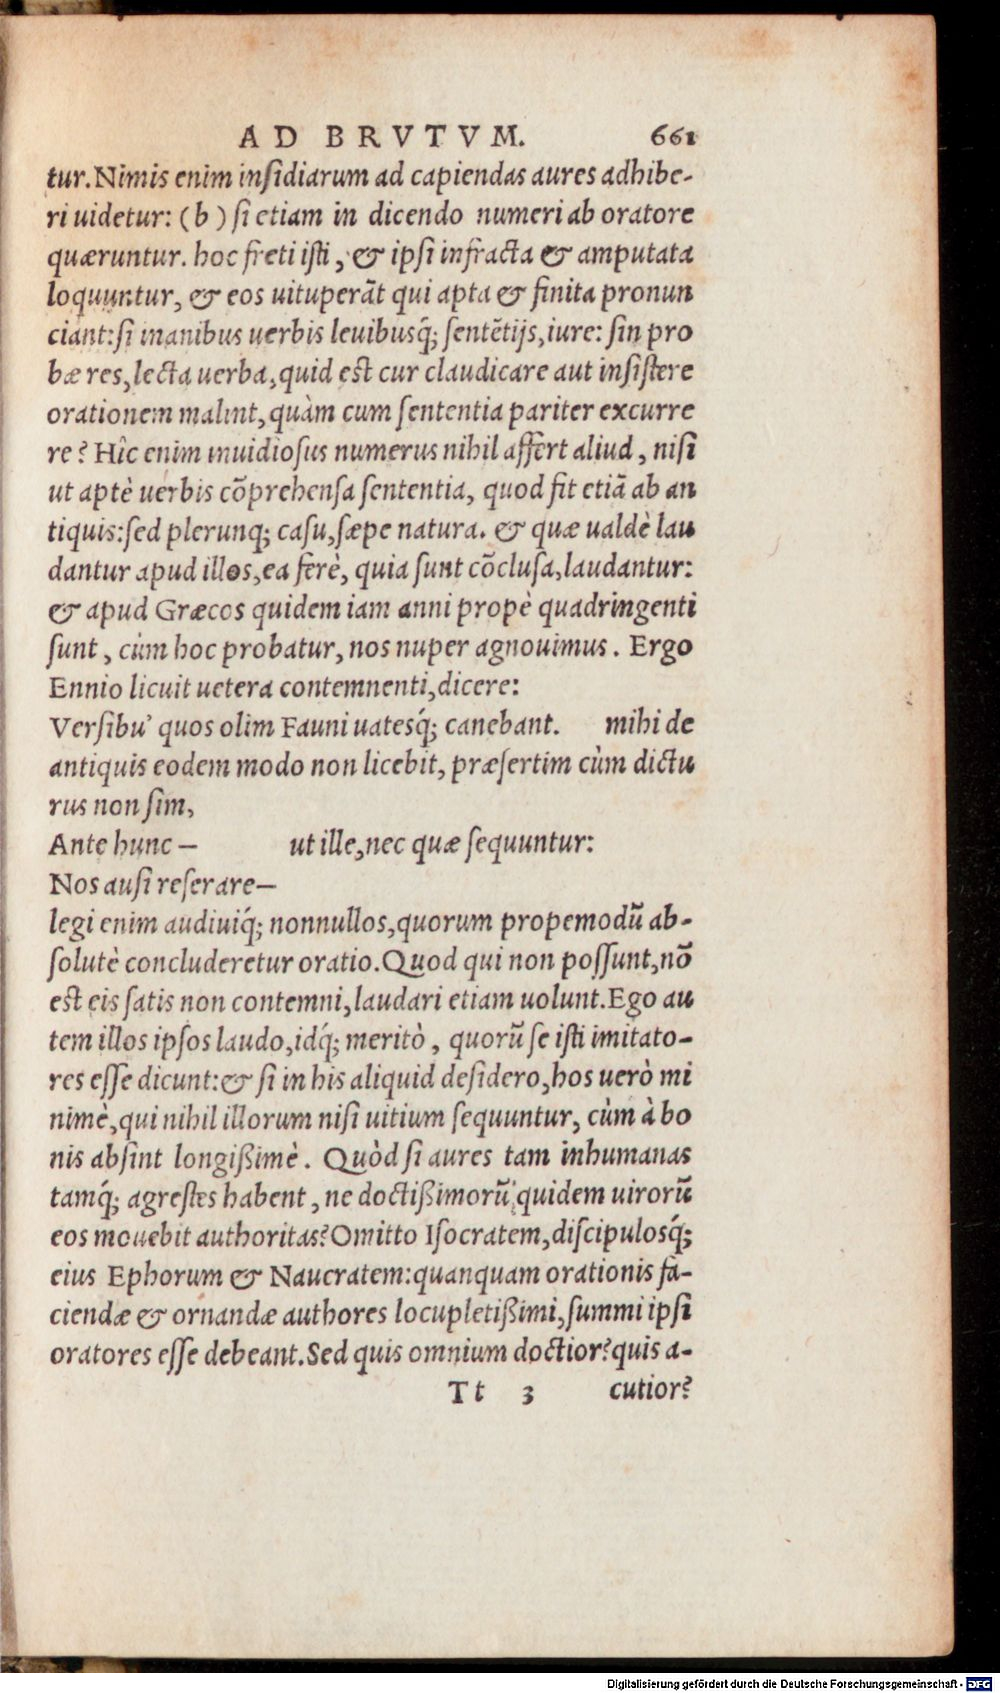 AD BRVTVM. 661
tur. Nimis enim insidiarum ad capiendas aures adhibe-
ri uidetur: (b) si etiam in dicendo numeri ab oratore
quæruntur. hoc freti isti, & ipsi infracta & amputata
loquuntur, & eos uituperāt qui apta & finita pronun
ciant: si inanibus uerbis leuibusq́; sentētijs, iure: sin pro
bæ res, lecta uerba, quid est cur claudicare aut insistere
orationem malint, quàm cum sententia pariter excurre
re? Hîc enim inuidiosus numerus nihil affert aliud, nisi
ut aptè uerbis cōprehensa sententia, quod fit etiā ab an
tiquis: sed plerunq; casu, sæpe natura. & quæ ualdè lau
dantur apud illos, ea ferè, quia sunt cōclusa, laudantur:
& apud Græcos quidem iam anni propè quadringenti
sunt, cùm hoc probatur, nos nuper agnouimus. Ergo
Ennio licuit uetera contemnenti, dicere:
Versibu’ quos olim Fauni uatesq́; canebant. mihi de
antiquis eodem modo non licebit, præsertim cùm dictu
rus non sim,
Ante hunc — ut ille, nec quæ sequuntur:
Nos ausi reserare—
legi enim audiuiq́; nonnullos, quorum propemodū ab-
solutè concluderetur oratio. Quod qui non possunt, nō
est eis satis non contemni, laudari etiam uolunt. Ego au
tem illos ipsos laudo, idq́; meritò, quorū se isti imitato-
res esse dicunt: & si in his aliquid desidero, hos uerò mi
nimè, qui nihil illorum nisi uitium sequuntur, cùm à bo
nis absint longißimè. Quòd si aures tam inhumanas
tamq́; agrestes habent, ne doctißimorū quidem uirorū
eos mouebit authoritas? Omitto Isocratem, discipulosq́;
eius Ephorum & Naucratem: quanquam orationis fa-
ciendæ & ornandæ authores locupletißimi, summi ipsi
oratores esse debeant. Sed quis omnium doctior? quis a-
Tt 3 cutior?
Digitalisierung gefördert durch die Deutsche Forschungsgemeinschaft - DFG